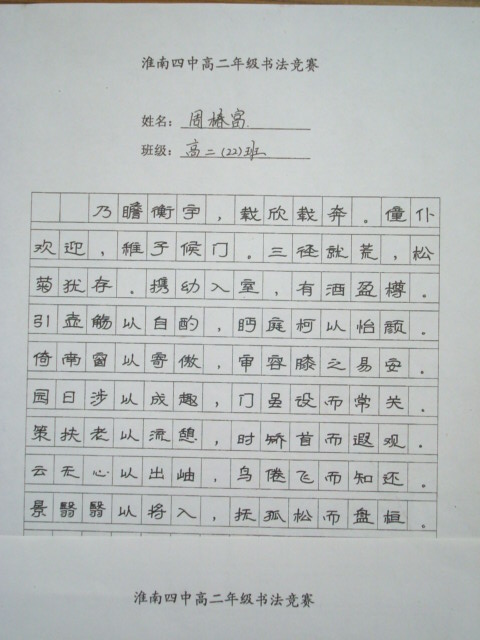 淮南四中高二年级书法竞赛
姓名：周椿富
班级：高二（22）班
乃瞻衡宇，载欣载奔。僮仆
欢迎，稚子候门。三径就荒，松
菊犹存。携幼入室，有酒盈樽。
引壶觞以自酌，眄庭柯以怡颜。
倚南窗以寄傲，审容膝之易安。
园日涉以成趣，门虽设而常关。
策扶老以流憩，时矫首而遐观。
云无心以出岫，鸟倦飞而知还。
景翳翳以将入，抚孤松而盘桓。
淮南四中高二年级书法竞赛